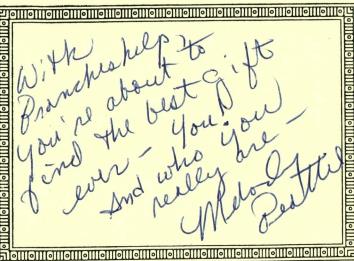 With
Branches help
You're about to
find the best gift
ever - You!
And who you
really are -
Melody
Beattie